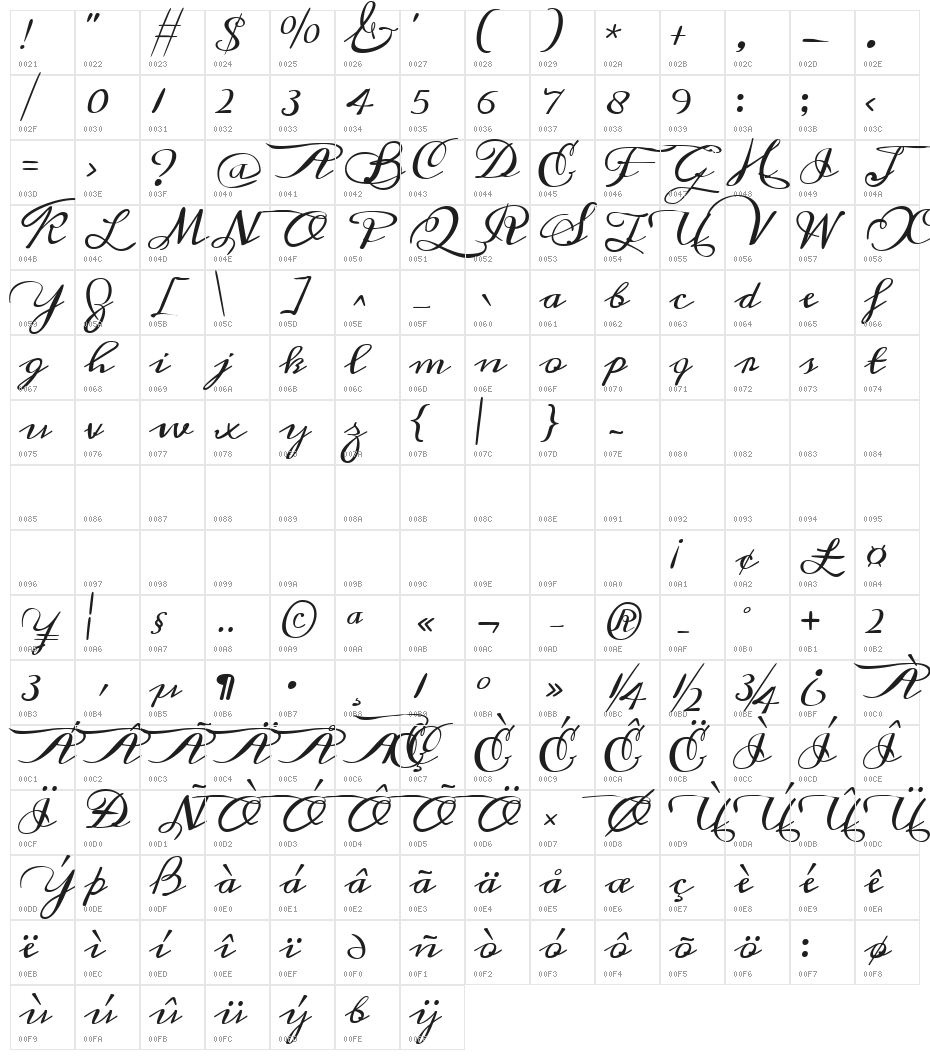 ! " # $ % & ' ( ) * + , - .
0021 0022 0023 0024 0025 0026 0027 0028 0029 002A 002B 002C 002D 002E
/ 0 1 2 3 4 5 6 7 8 9 : ; <
002F 0030 0031 0032 0033 0034 0035 0036 0037 0038 0039 003A 003B 003C
= > ? @ A B C D E F G H I J
003D 003E 003F 0040 0041 0042 0043 0044 0045 0046 0047 0048 0049 004A
K L M N O P Q R S T U V W X
004B 004C 004D 004E 004F 0050 0051 0052 0053 0054 0055 0056 0057 0058
Y Z [ \ ] ^ _ ` a b c d e f
0059 005A 005B 005C 005D 005E 005F 0060 0061 0062 0063 0064 0065 0066
g h i j k l m n o p q r s t
0067 0068 0069 006A 006B 006C 006D 006E 006F 0070 0071 0072 0073 0074
u v w x y z { | } ~
0075 0076 0077 0078 0079 007A 007B 007C 007D 007E 0080 0082 0083 0084
0085 0086 0087 0088 0089 008A 008B 008C 008E 0091 0092 0093 0094 0095
¡ ¢ £ ¤
0096 0097 0098 0099 009A 009B 009C 009E 009F 00A0 00A1 00A2 00A3 00A4
¥ ¦ § ¨ © ª « ¬ - ® ¯ ° ± ²
00A5 00A6 00A7 00A8 00A9 00AA 00AB 00AC 00AD 00AE 00AF 00B0 00B1 00B2
³ ´ µ ¶ · ¸ ¹ º » ¼ ½ ¾ ¿ À
00B3 00B4 00B5 00B6 00B7 00B8 00B9 00BA 00BB 00BC 00BD 00BE 00BF 00C0
Á Â Ã Ä Å Æ Ç È É Ê Ë Ì Í Î
00C1 00C2 00C3 00C4 00C5 00C6 00C7 00C8 00C9 00CA 00CB 00CC 00CD 00CE
Ï Ð Ñ Ò Ó Ô Õ Ö × Ø Ù Ú Û Ü
00CF 00D0 00D1 00D2 00D3 00D4 00D5 00D6 00D7 00D8 00D9 00DA 00DB 00DC
Ý Þ ß à á â ã ä å æ ç è é ê
00DD 00DE 00DF 00E0 00E1 00E2 00E3 00E4 00E5 00E6 00E7 00E8 00E9 00EA
ë ì í î ï ð ñ ò ó ô õ ö ÷ ø
00EB 00EC 00ED 00EE 00EF 00F0 00F1 00F2 00F3 00F4 00F5 00F6 00F7 00F8
ù ú û ü ý þ ÿ
00F9 00FA 00FB 00FC 00FD 00FE 00FF